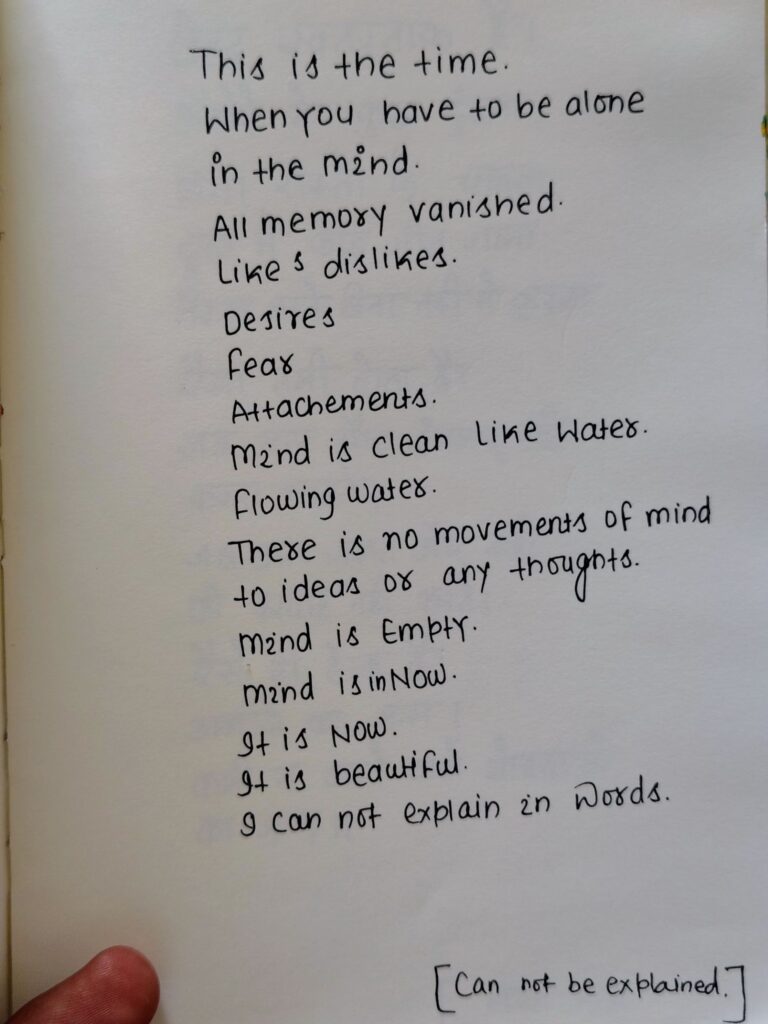 This is the time.
When you have to be alone
in the mind.
All memory vanished.
Like s dislikes.
Desires
fear
Attachements.
Mind is clean like Water.
flowing water.
There is no movements of mind
to ideas or any thoughts.
Mind is Empty.
Mind is in Now.
It is Now.
It is beautiful.
I can not explain in Words.
[Can not be explained.]